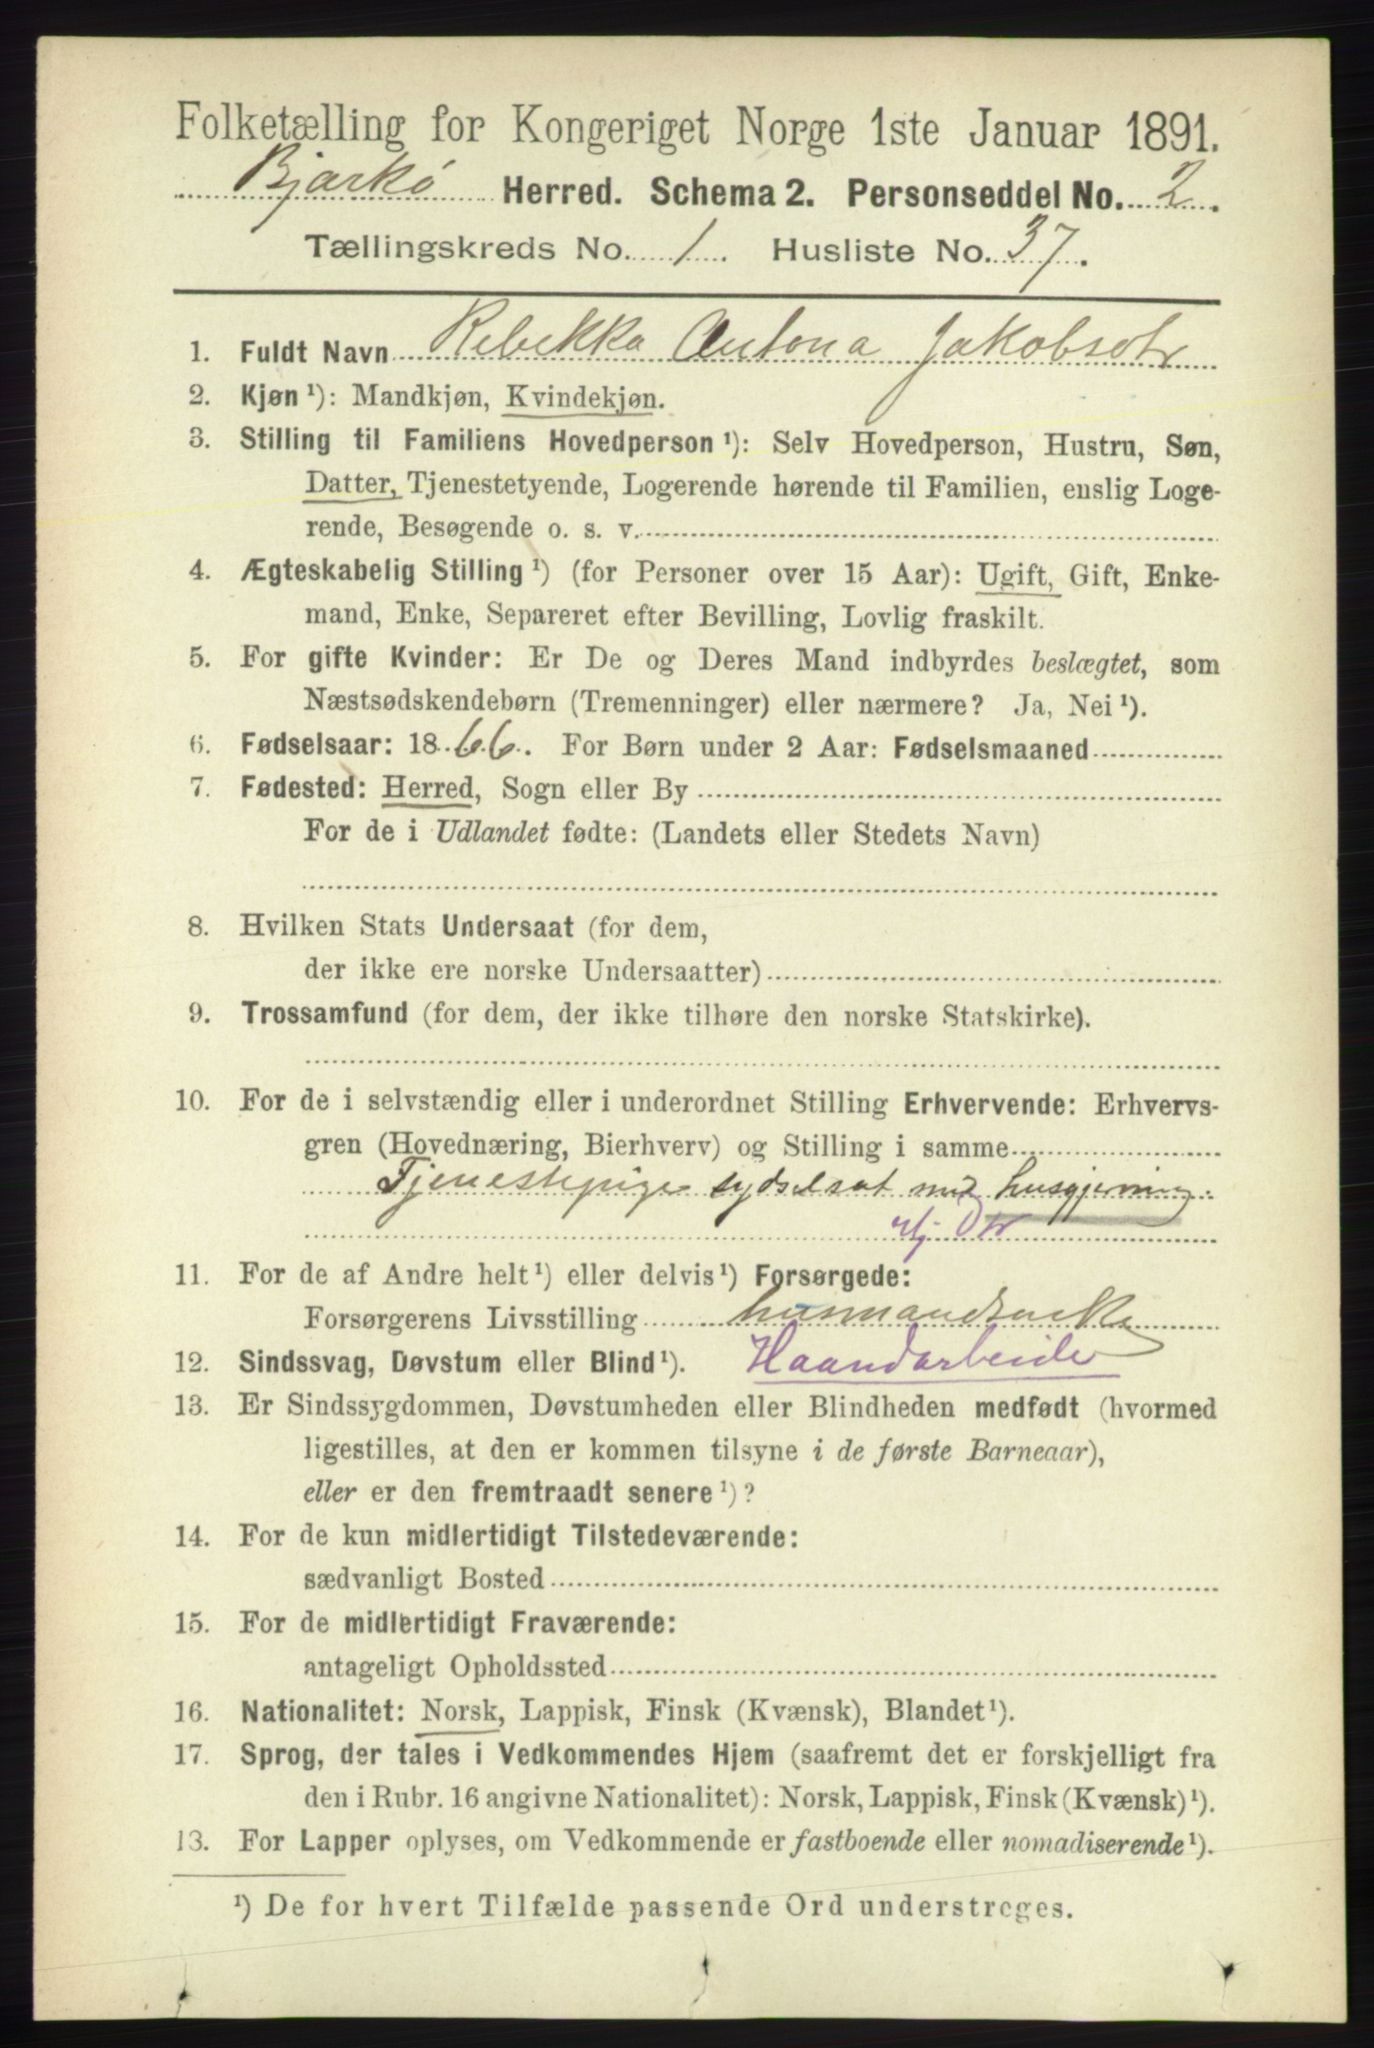 Folketælling for Kongeriget Norge 1ste Januar 1891.
Bjarkø Herred. Schema 2. Personseddel No. 2.
Tællingskreds No. 1. Husliste No. 37.
1. Fuldt Navn Rebekka Antona Jakobsdtr
2. Kjøn ¹): Mandkjøn, Kvindekjøn.
3. Stilling til Familiens Hovedperson ¹): Selv Hovedperson, Hustru, Søn,
Datter, Tjenestetyende, Logerende hørende til Familien, enslig Loge-
rende, Besøgende o. s. v.
4. Ægteskabelig Stilling ¹) (for Personer over 15 Aar): Ugift, Gift, Enke-
mand, Enke, Separeret efter Bevilling, Lovlig fraskilt.
5. For gifte Kvinder: Er De og Deres Mand indbyrdes beslægtet, som
Næstsødskendebørn (Tremenninger) eller nærmere? Ja, Nei ¹).
6. Fødselsaar: 1866. For Børn under 2 Aar: Fødselsmaaned
7. Fødested: Herred, Sogn eller By
For de i Udlandet fødte: (Landets eller Stedets Navn)
8. Hvilken Stats Undersaat (for dem,
der ikke ere norske Undersaatter)
9. Trossamfund (for dem, der ikke tilhøre den norske Statskirke).
10. For de i selvstændig eller i underordnet Stilling Erhvervende: Erhvervs-
gren (Hovednæring, Bierhverv) og Stilling i samme
Tjenestepige sydselsat med husgjerning.
11. For de af Andre helt ¹) eller delvis ¹) Forsørgede:
Forsørgerens Livsstilling
12. Sindssvag, Døvstum eller Blind ¹). Haandarbeide
13. Er Sindssygdommen, Døvstumheden eller Blindheden medfødt (hvormed
ligestilles, at den er kommen tilsyne i de første Barneaar),
eller er den fremtraadt senere ¹)?
14. For de kun midlertidigt Tilstedeværende:
sædvanligt Bosted
15. For de midlertidigt Fraværende:
antageligt Opholdssted
16. Nationalitet: Norsk, Lappisk, Finsk (Kvænsk), Blandet ¹).
17. Sprog, der tales i Vedkommendes Hjem (saafremt det er forskjelligt fra
den i Rubr. 16 angivne Nationalitet): Norsk, Lappisk, Finsk (Kvænsk) ¹).
13. For Lapper oplyses, om Vedkommende er fastboende eller nomadiserende ¹).
¹) De for hvert Tilfælde passende Ord understreges.